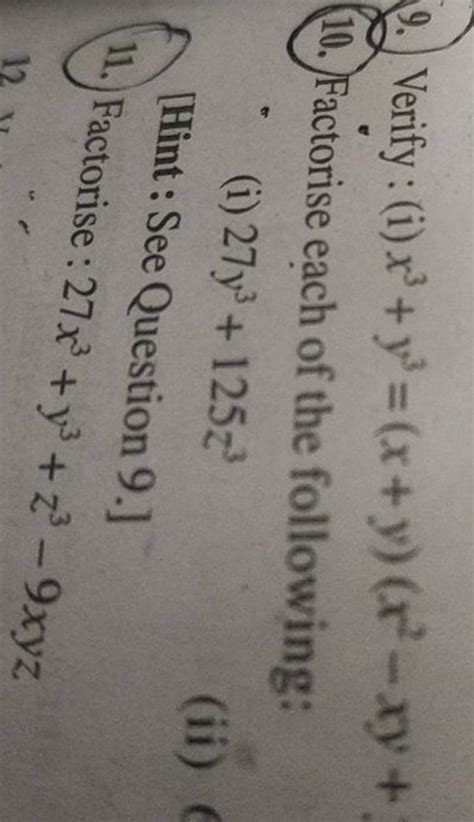 9. Verify : (i) x³ + y³ = (x + y) (x² – xy +
10. Factorise each of the following:
(i) 27y³ + 125z³ (ii)
[Hint : See Question 9.]
11. Factorise : 27x³ + y³ + z³ – 9xyz
12